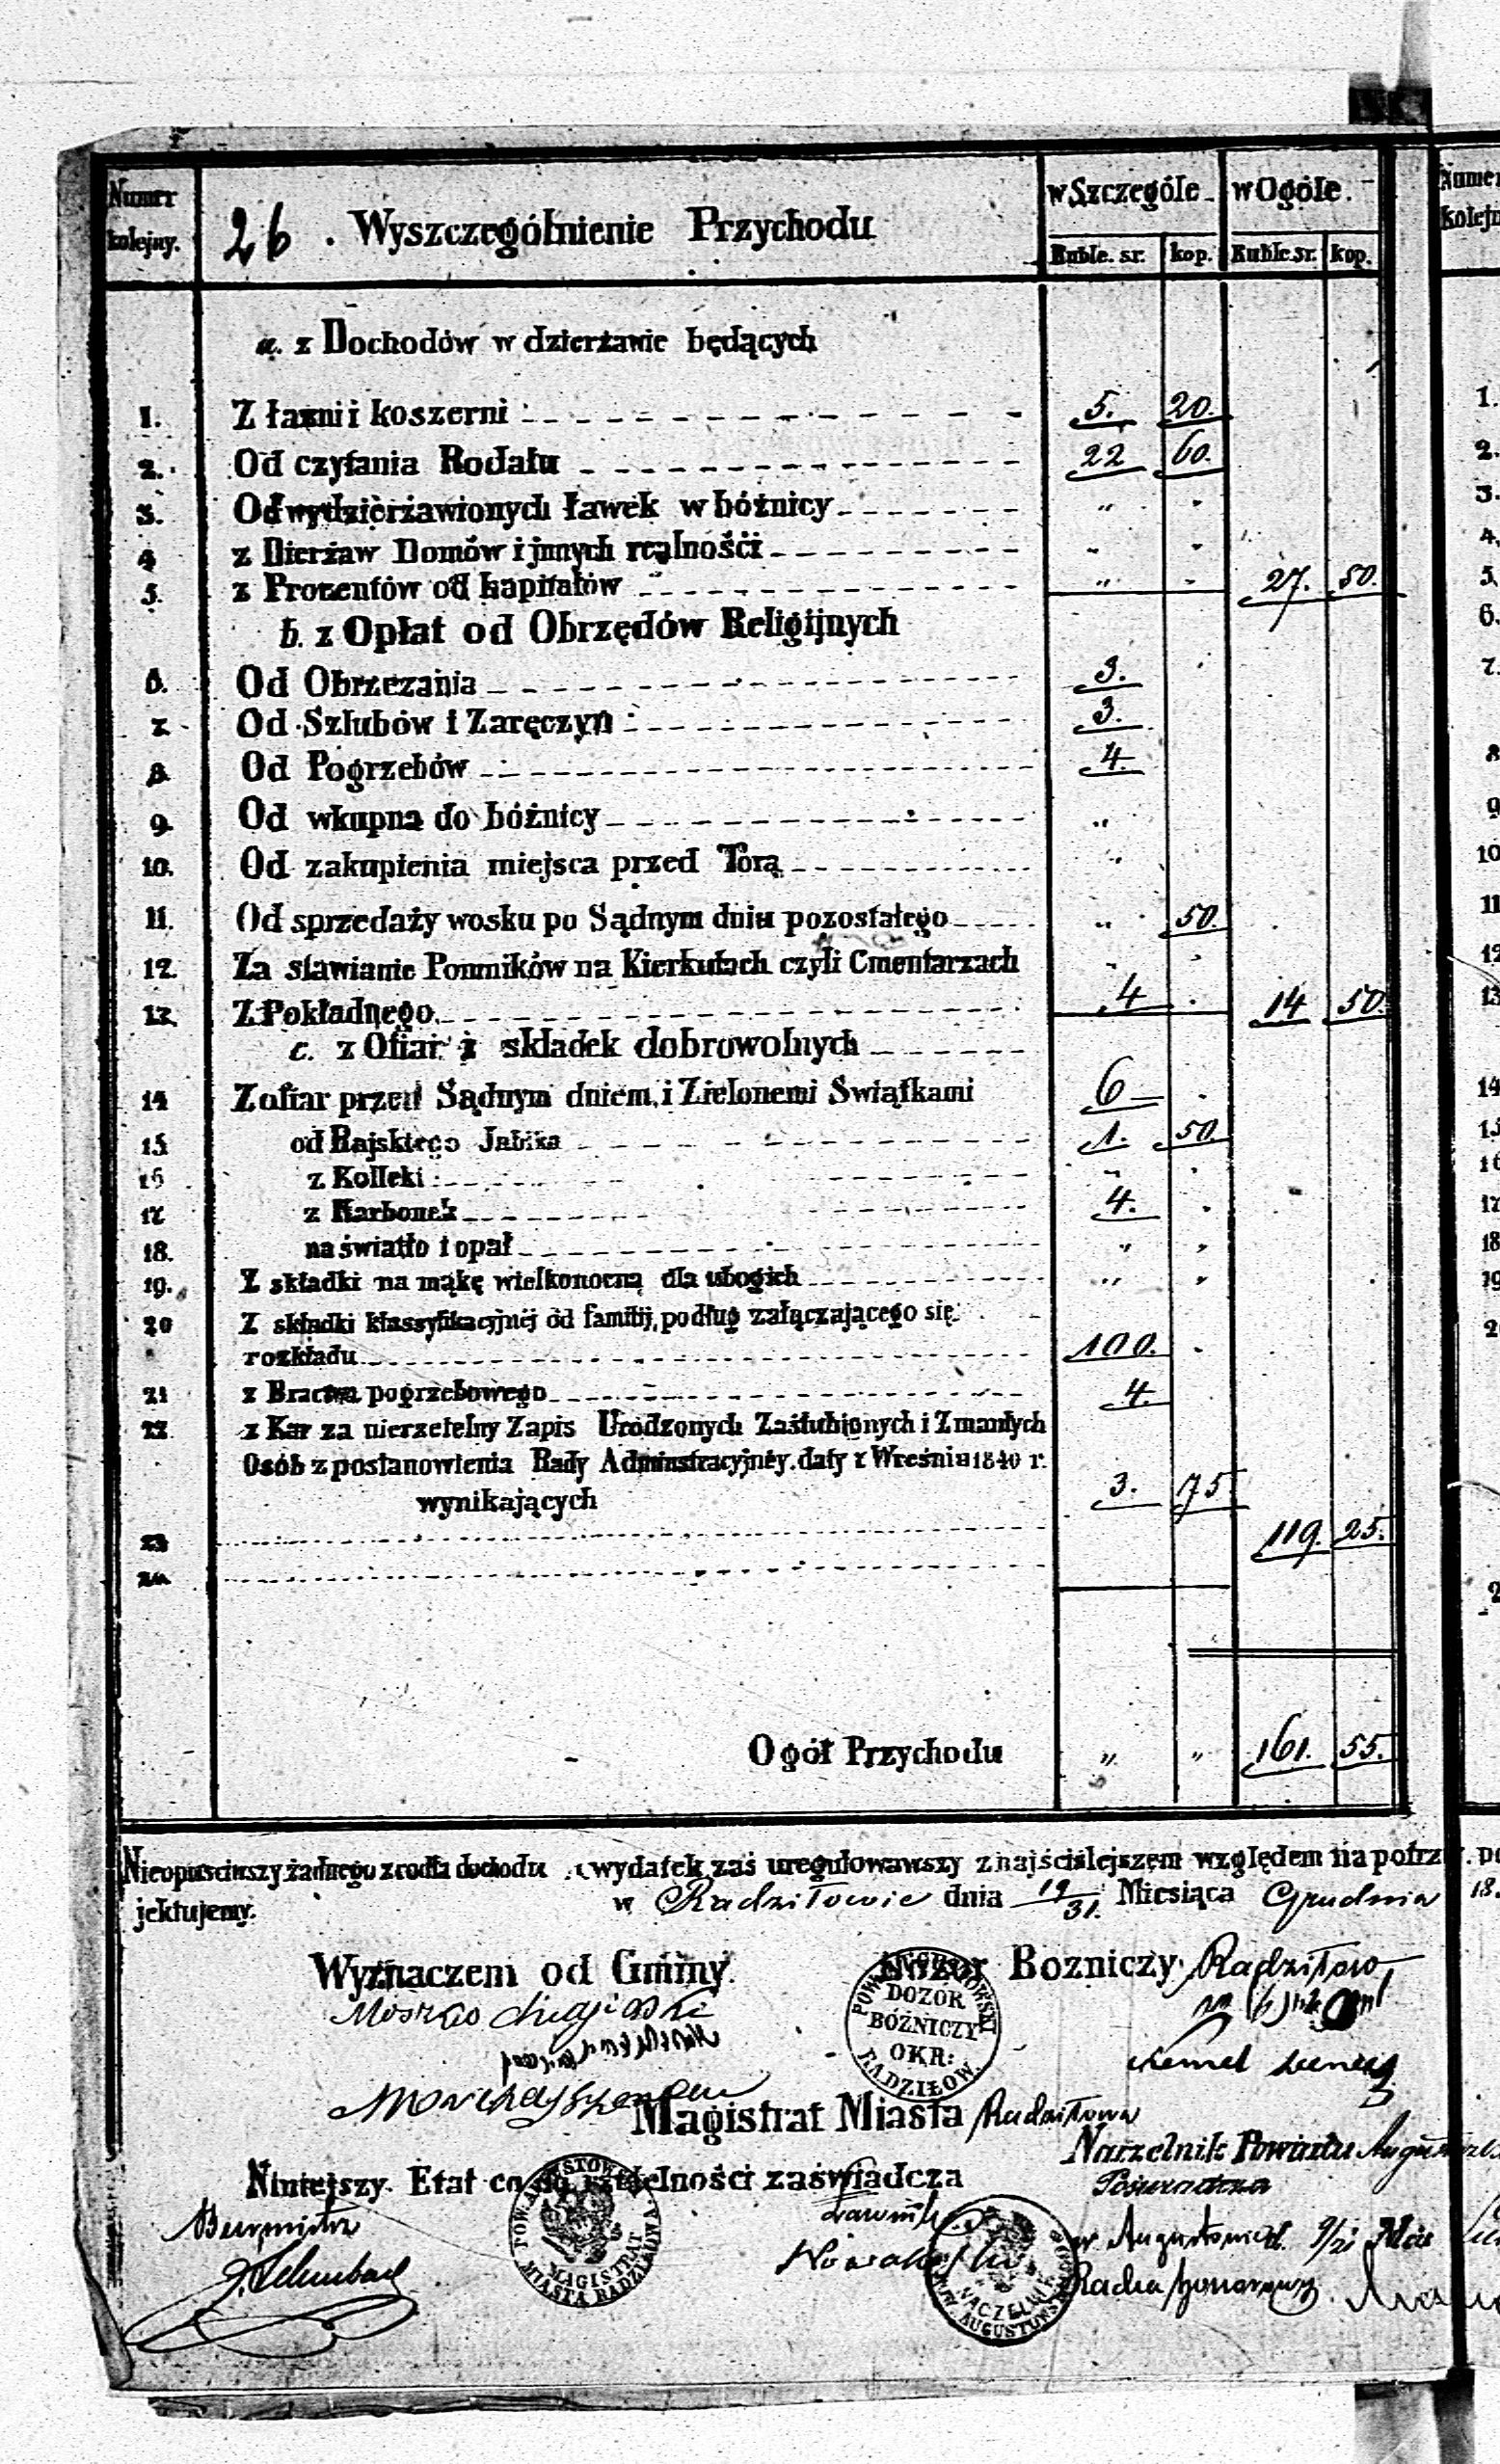 Numer kolejny. 26. Wyszczególnienie Przychodu w Szczególe. w Ogóle.
Ruble. sr. kop. Ruble sr. kop.
a. z Dochodów w dzierżawie będących
1. Z łaźni i koszerni 5. 20.
2. Od czytania Rodału 22 60.
3. Od wydzierżawionych ławek w bóżnicy „ „
4 z Dierżaw Domów i jnnych realnośći „ „
5. z Procentów od kapitałów „ „ 27. 50.
b. z Opłat od Obrzędów Religijnych
6. Od Obrzezania 3.
7. Od Szlubów i Zaręczyn 3.
8. Od Pogrzebów 4.
9. Od wkupna do bóżnicy „
10. Od zakupienia miejsca przed Torą „
11. Od sprzedaży wosku po Sądnym dniu pozostałego „ 50.
12. Za stawianie Pomników na Kierkutach czyli Cmentarzach „ „
13. Z Pokładnego 4 . 14 50.
c. z Ofiar i składek dobrowolnych
14 Z ofiar przed Sądnym dniem, i Zielonemi Swiątkami 6 .
15 od Rajskiego Jabłka 1. 50.
16 z Kolleki „ .
17 z Karbonek 4. .
18. na światło i opał „ „
19. Z składki na mąkę wielkonocną dla ubogich „ „
20 Z składki klassyfikacyjnéj od familij, podług załączającego się
rozkładu 100. .
21 z Bractwa pogrzebowego 4.
22 z Kar za nierzetelny Zapis Urodzonych Zaślubionych i Zmarłych
Osób z postanowienia Rady Administracyjnéy. daty 1 Wreśnia 1840 r.
wynikających 3. 75.
23 119. 25.
24.
Ogół Przychodu „ „ 161. 55.
Nieopusciwszy żadnego zrodła dochodu a wydatek zaś uregulowawszy z najściślejszem względem na potrz
jektujemy. w Radziłowie dnia 19/31. Miesiąca Grudnia 18
Wyznaczeni od Gminy. Dozor Bozniczy Radziłow
POW. AUGUSTOWSKI DOZÓR BÓŻNICZY OKR: RADZIŁOW.
Magistrat Miasta Radziłowa
Naczelnik Powiatu
Niniejszy Etat co do rzetelności zaświadcza
Poswiadcza
Burmistrz Ławnik
w Augustowie d. 9/21 Maja
MAGISTRAT MIASTA RADZIŁOWA.
NACZELNIK POW. AUGUSTOWSKIEGO
Radca honorowy